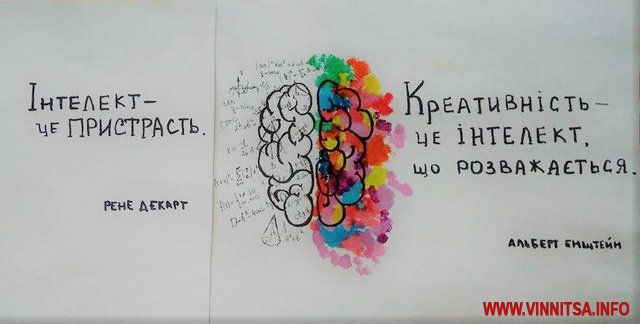 Інтелект –
це пристрасть.
Рене Декарт
Креативність –
це інтелект,
що розважається.
Альберт Енштейн
WWW.VINNITSA.INFO